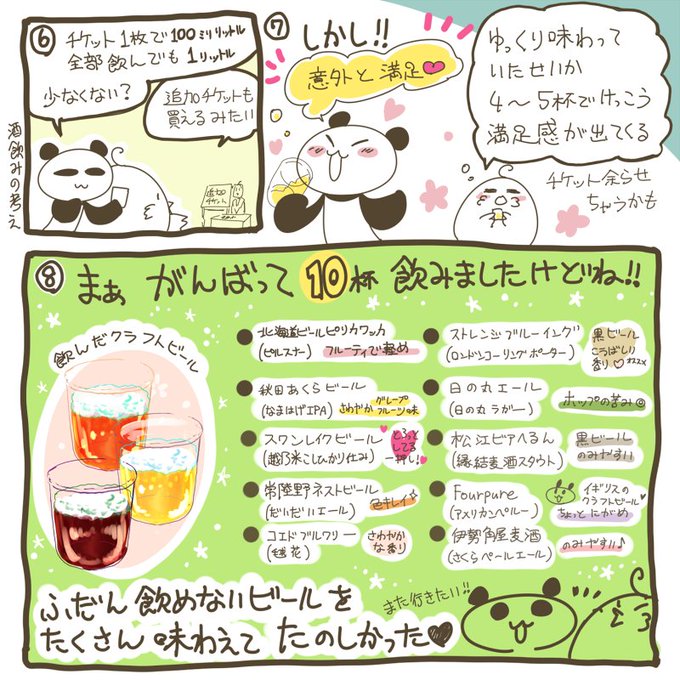 ⑥
チケット1枚で100ミリリットル
全部飲んでも1リットル
少なくない?
追加チケットも
買えるみたい
追加
チケット
酒飲みの考え
⑦
しかし!!
意外と満足♥
ゆっくり味わって
いたせいか
4〜5杯でけっこう
満足感が出てくる
チケット余らせ
ちゃうかも
⑧
まぁ がんばって10杯飲みましたけどね!!
飲んだクラフトビール
● 北海道ビールピリカワッカ
(ピルスナー) フルーティで軽め
● 秋田あくらビール
(なまはげIPA) さわやか グレープ
フルーツ味
● スワンレイクビール
(越乃米こしひかり仕込み)
とろっ
としてる
一押し!
● 常陸野ネストビール
(だいだいエール) 色キレイ
● コエドブルワリー
(毬花) さわやか
な香り
● ストレンジブルーイング
(ロンドンコーリングポーター)
黒ビール
こうばしい
香り♡オススメ
● 日の丸エール
(日の丸ラガー) ホップの苦み◎
● 松江ビアへるん
(縁結麦酒スタウト) 黒ビール
のみやすい
● Fourpure
(アメリカンペルー)
イギリスの
クラフトビール
ちょっとにがめ
● 伊勢角屋麦酒
(さくらペールエール) のみやすい♪
ふだん飲めないビールを
たくさん味わえてたのしかった♥
また行きたい!!